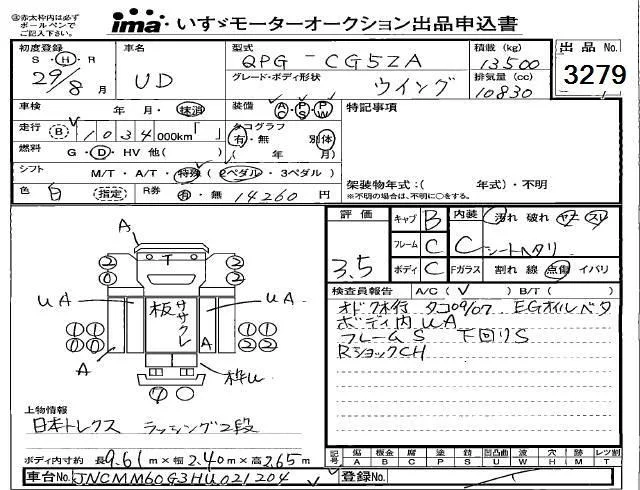 ※赤太枠内は必ず
ボールペンで
ご記入下さい。
ima いすゞモーターオークション出品申込書
初度登録 S・H・R 29/8 月
車名 UD
型式 QPG-CG5ZA
積載 (kg) 13500
出品 No. 3279
グレード・ボディ形状 ウイング
排気量 (cc) 10830
車検 年 月・抹消
装備 AC PS PW
特記事項
走行 B 1034 000km「 」
タコグラフ 有・無 別体
燃料 G・D・HV 他( )
( 年 月)
シフト M/T・A/T・特殊 (2ペダル・3ペダル)
架装物年式:( 年式)・不明
※不明の場合は、不明に○をする。
色 白 (指定) R券 有・無 14260 円
評価 3.5
キャブ B
内装 C 汚れ 破れ ヤケ スレ
フレーム C
シートヘタリ
ボディ C
Fガラス 割れ 線 点傷 イバリ
検査員報告 A/C( ✓ ) B/T( )
オドク木行 タコ09/07 EGオイルベタ
ボディ内UA
フレームS 下回りS
RショックCH
A
T
UA 板ササクレ UA
A A
枠U
上物情報
日本トレクス ラッシング2段
ボディ内寸約 長9.61m×幅2.40m×高2.65m
記号 傷 A 板金 B 腐 C 塗 P 錆 S 凹凸曲 U 波 W 穴 H 跡 M レツ割 T
車台No. JNCMM60G3HU021204
登録No.